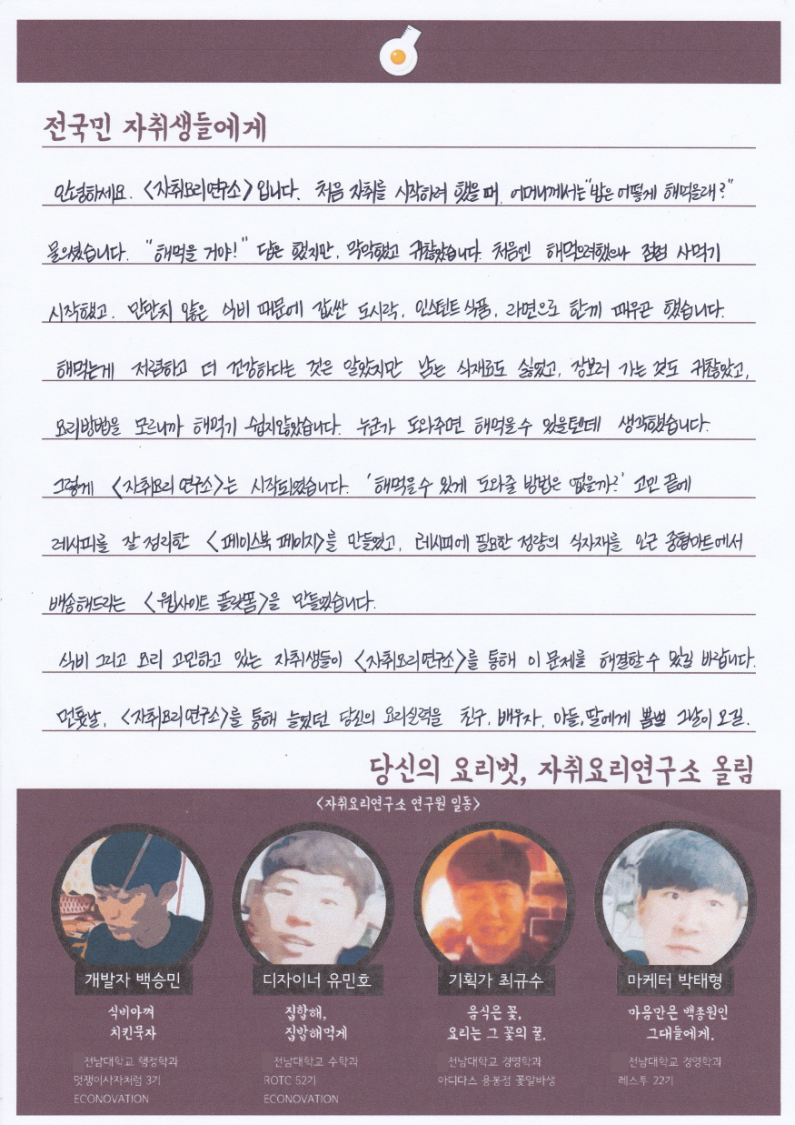 전국민 자취생들에게
안녕하세요. <자취요리연구소>입니다. 처음 자취를 시작하려 했을 때, 어머니께서는 "밥은 어떻게 해먹을래?"
물으셨습니다. "해먹을 거야!" 답은 했지만, 막막했고 귀찮았습니다. 처음엔 해먹으려했으나 점점 사먹기
시작했고, 만만치 않은 식비 때문에 값싼 도시락, 인스턴트 식품, 라면으로 한끼 때우곤 했습니다.
해먹는게 저렴하고 더 건강하다는 것은 알았지만 남는 식재료도 싫었고, 장보러 가는 것도 귀찮았고,
요리방법을 모르니까 해먹기 쉽지않았습니다. 누군가 도와주면 해먹을수 있을텐데 생각했습니다.
그렇게 <자취요리 연구소>는 시작되었습니다. '해먹을수 있게 도와줄 방법은 없을까?' 고민 끝에
레시피를 잘 정리한 <페이스북 페이지>를 만들었고, 레시피에 필요한 정량의 식자재를 인근 종합마트에서
배송해드리는 <웹사이트 플랫폼>을 만들었습니다.
식비 그리고 요리 고민하고 있는 자취생들이 <자취요리연구소>를 통해 이 문제를 해결할 수 있길 바랍니다.
먼훗날, <자취요리연구소>를 통해 늘렸던 당신의 요리실력을 친구, 배우자, 아들,딸에게 뽐낼 그날이 오길.
당신의 요리벗, 자취요리연구소 올림
<자취요리연구소 연구원 일동>
개발자 백승민
식비아껴
치킨묵자
전남대학교 행정학과
멋쟁이사자처럼 3기
ECONOVATION
디자이너 유민호
집합해,
집밥해먹게
전남대학교 수학과
ROTC 52기
ECONOVATION
기획가 최규수
음식은 꽃,
요리는 그 꽃의 꿀.
전남대학교 경영학과
아디다스 용봉점 꽃알바생
마케터 박태형
마음만은 백종원인
그대들에게.
전남대학교 경영학과
레스투 22기